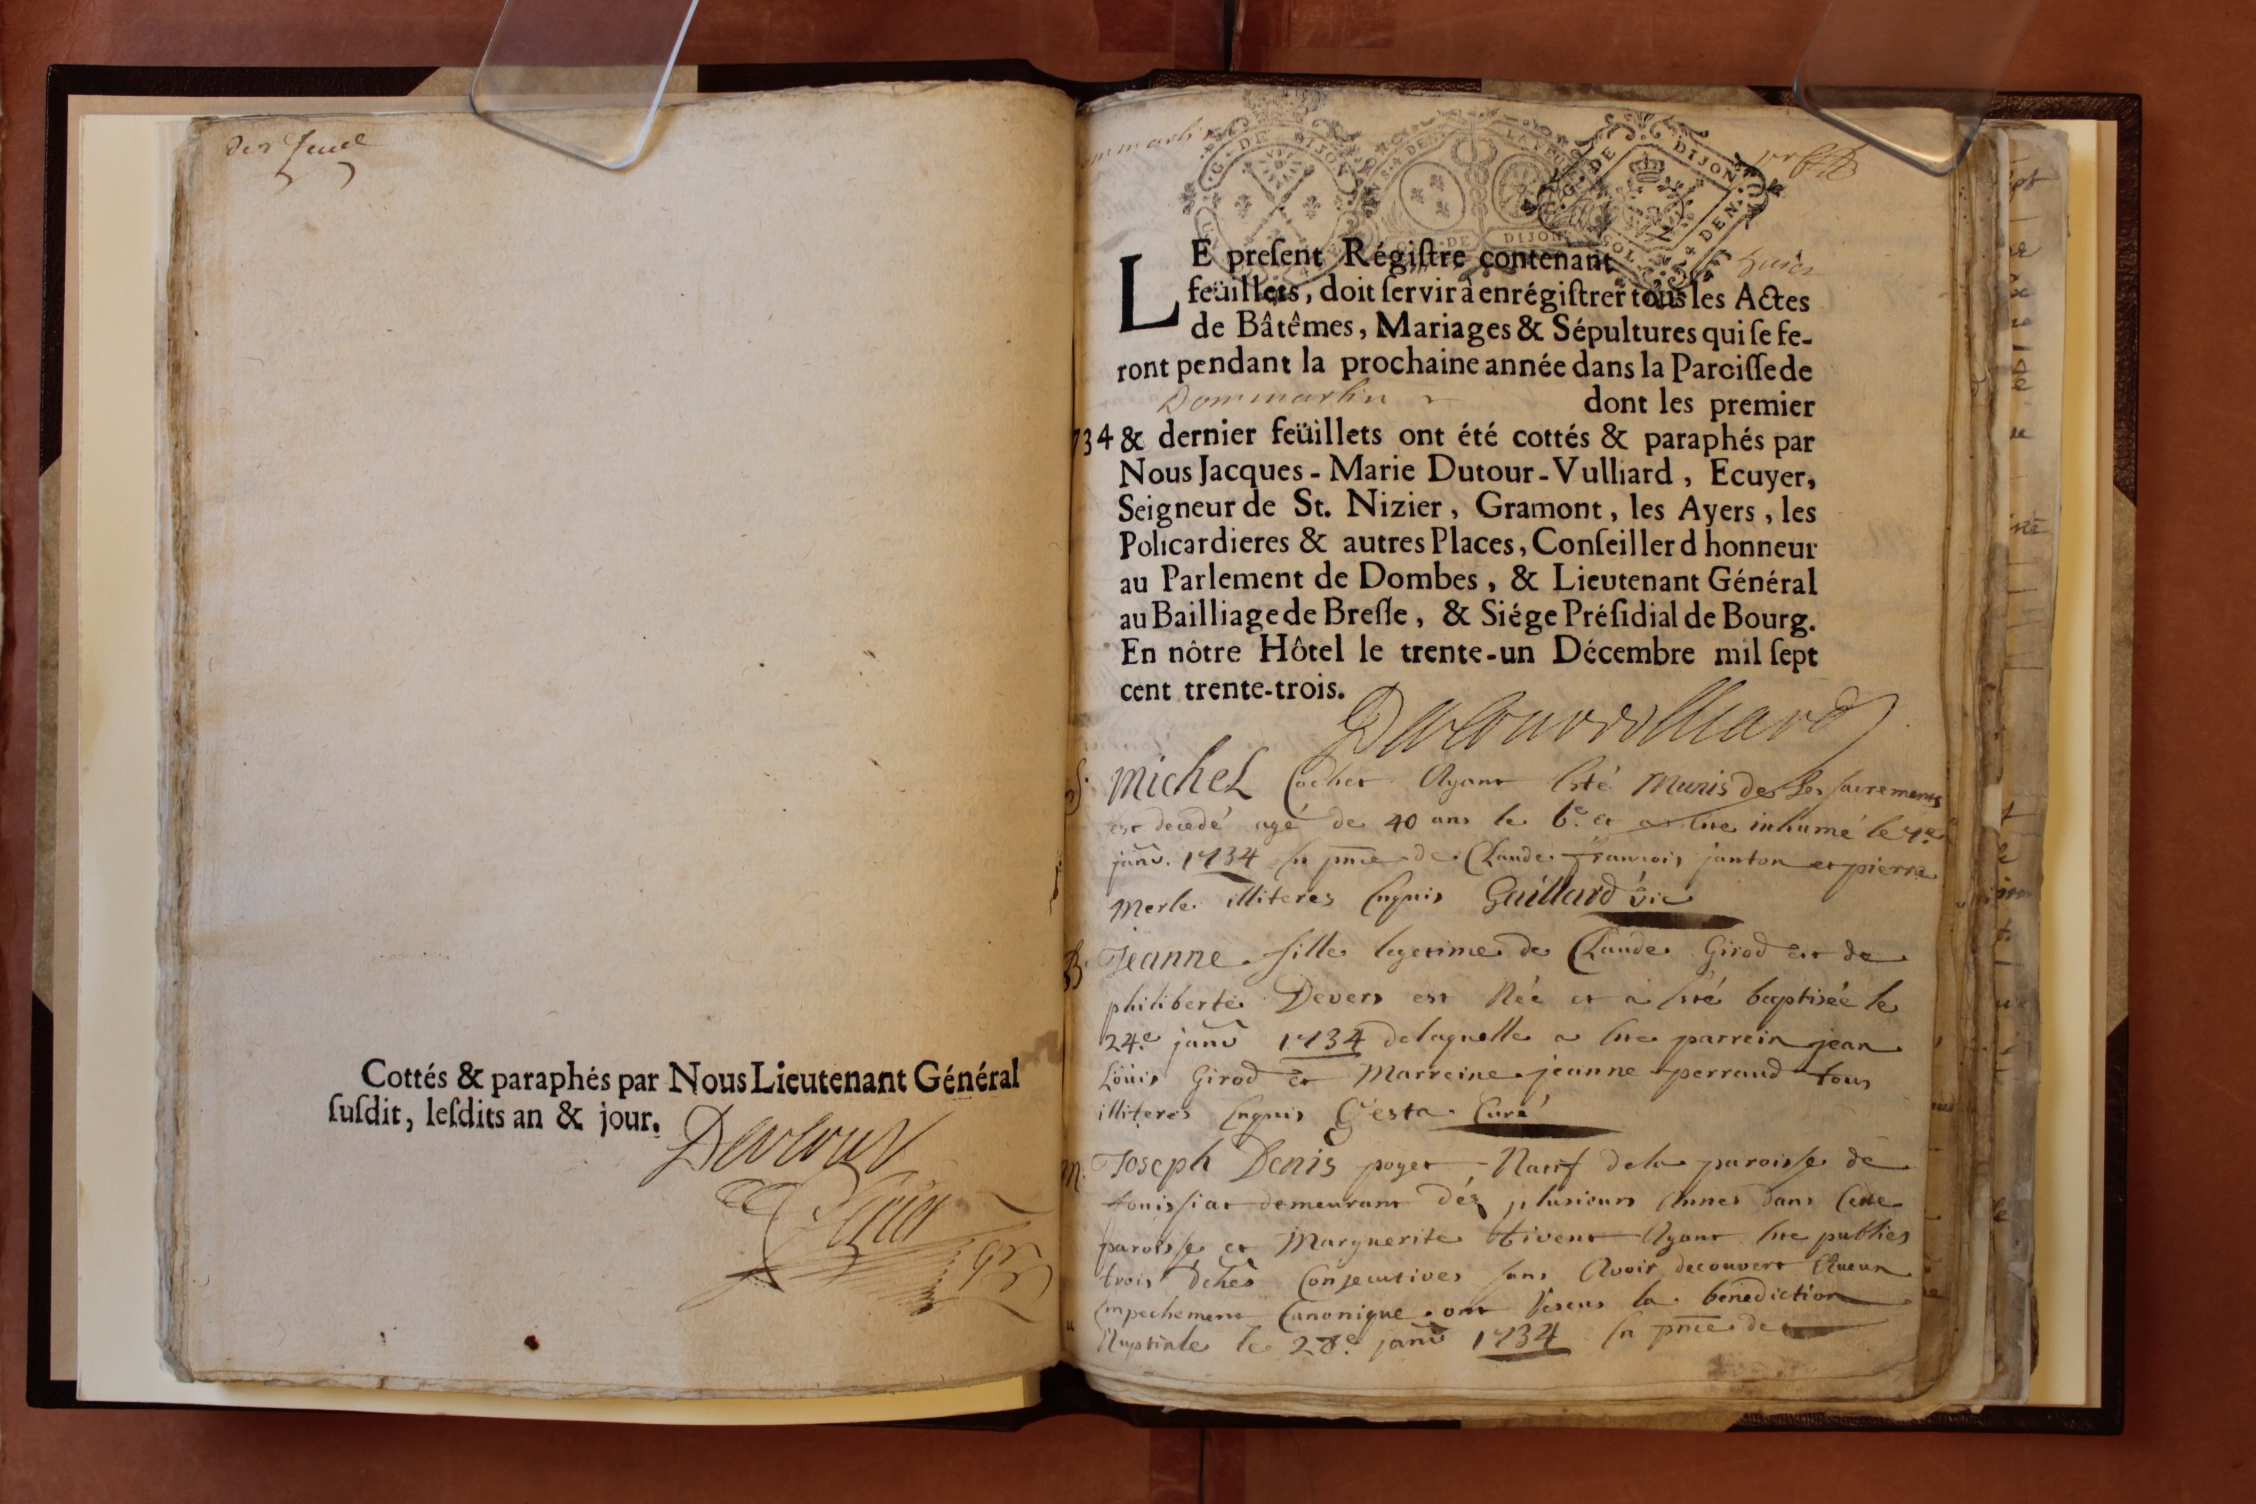 der feuil
Cottés & paraphés par Nous Lieutenant Général
ſuſdit, leſdits an & jour.
Dutour
G. DE DIJON
G. DE DIJON
LE preſent Régiſtre contenant huict
feüillets, doit ſervir à enrégiſtrer tous les Actes
de Bâtêmes, Mariages & Sépultures qui ſe fe-
ront pendant la prochaine année dans la Paroiſſe de
Dommartin dont les premier
734 & dernier feüillets ont été cottés & paraphés par
Nous Jacques-Marie Dutour-Vulliard, Ecuyer,
Seigneur de St. Nizier, Gramont, les Ayers, les
Policardieres & autres Places, Conſeiller d honneur
au Parlement de Dombes, & Lieutenant Général
au Bailliage de Breſſe, & Siége Préſidial de Bourg.
En nôtre Hôtel le trente-un Décembre mil ſept
cent trente-trois.
Dutour Vulliard
S. Michel Cochet Ayant Esté Munis de Ses sacrements
est decedé agé de 40 ans le 6e. et a Ete inhumé le 7e
janv. 1734 En pnce de Claude francois janton et pierre
Merle illiteres Enquis Gaillard vic
B. Jeanne fille legetime de Claude Girod et de
philiberte Devers est Née et a Eté baptisée le
24e. janv 1734 de laquelle a Ete parrein jean
Loüis Girod et Marreine jeanne perraud tous
illiteres Enquis Gesta Curé
M. Joseph Denis poget Natif de la paroisse de
touissiat demeurant déz plusieurs Annes dans Cette
paroisse et Marguerite tivent Ayant Ete publies
trois dches Consecutives sans Avoir decouvert Aucun
Empechement Canonique ont Receus la benediction
Nuptiale le 28e. janv 1734 En pnce de